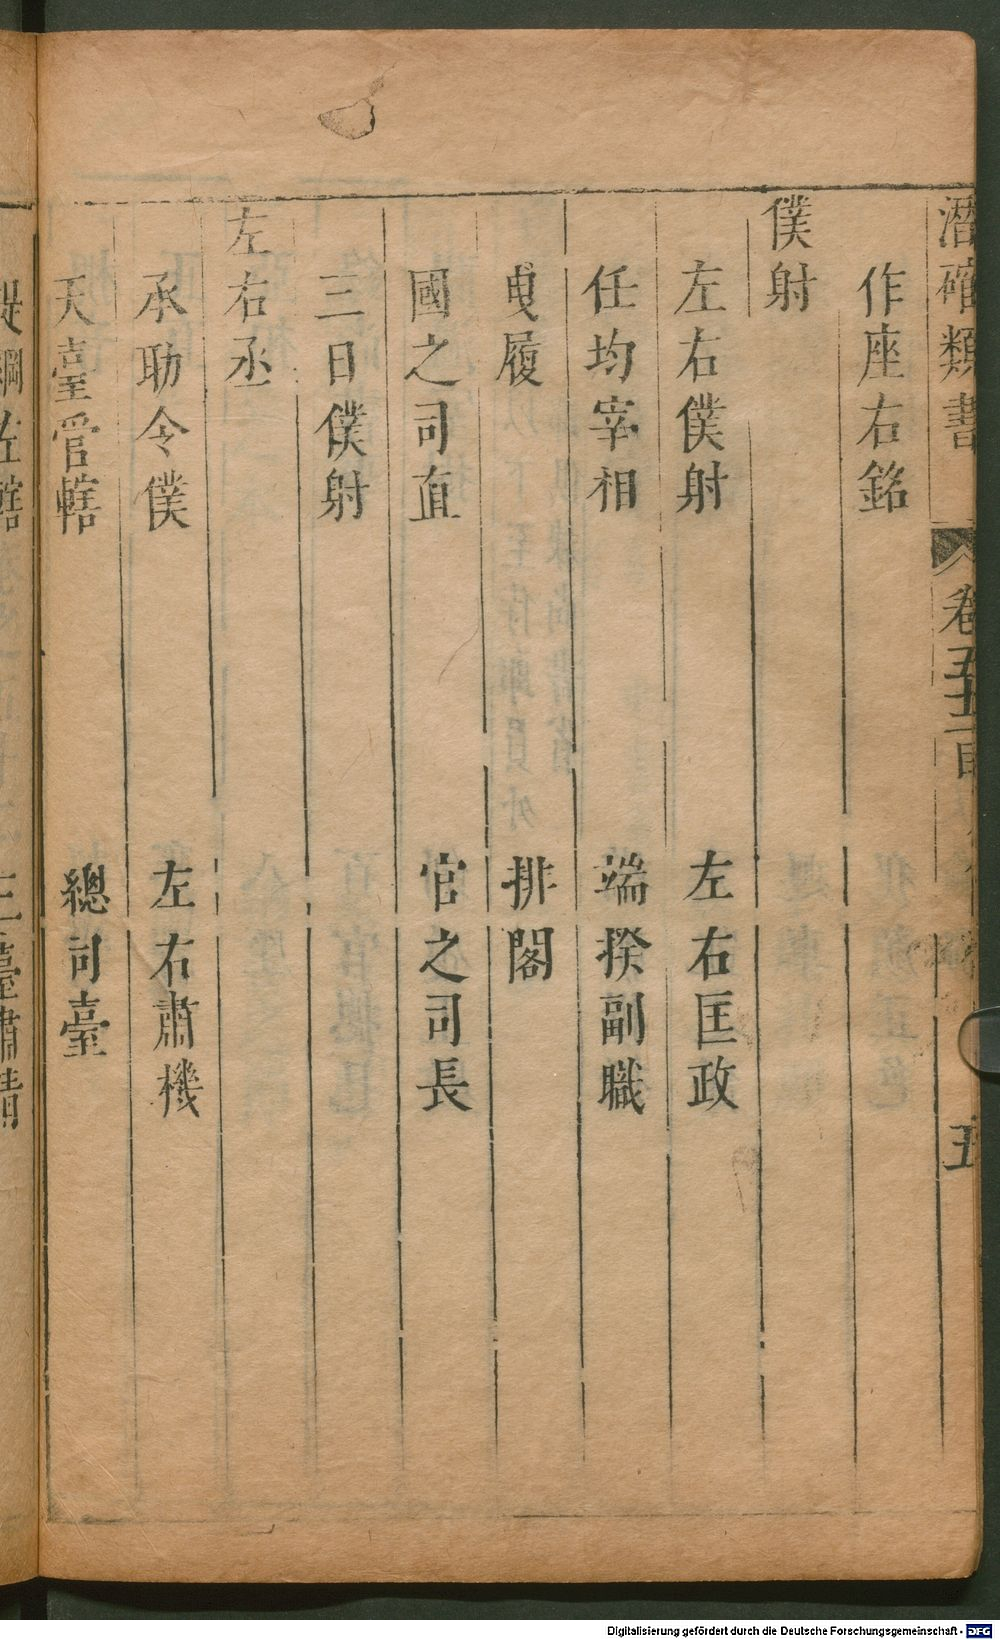 潛確類書 卷五十二目 五
作座右銘
僕射
左右僕射 左右匡政
任均宰相 端揆副職
曳履 排閣
國之司直 官之司長
三日僕射
左右丞
承助令僕 左右肅機
天臺管轄 總司臺
提綱左轄 三臺肅清
Digitalisierung gefördert durch die Deutsche Forschungsgemeinschaft - DFG